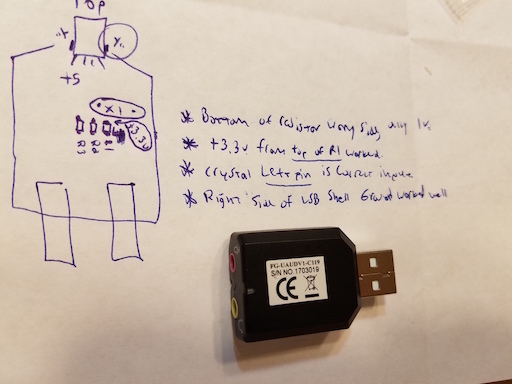 Top
+5
X1
+3.3v
R3
R2
R1
* Bottom of resistor wrong side, only 1v
* +3.3v from top of R1 worked.
* Crystal Left pin is correct input.
* Right side of USB Shell Ground worked well
FG-UAUDV1-C119
S/N NO.1703019
CE